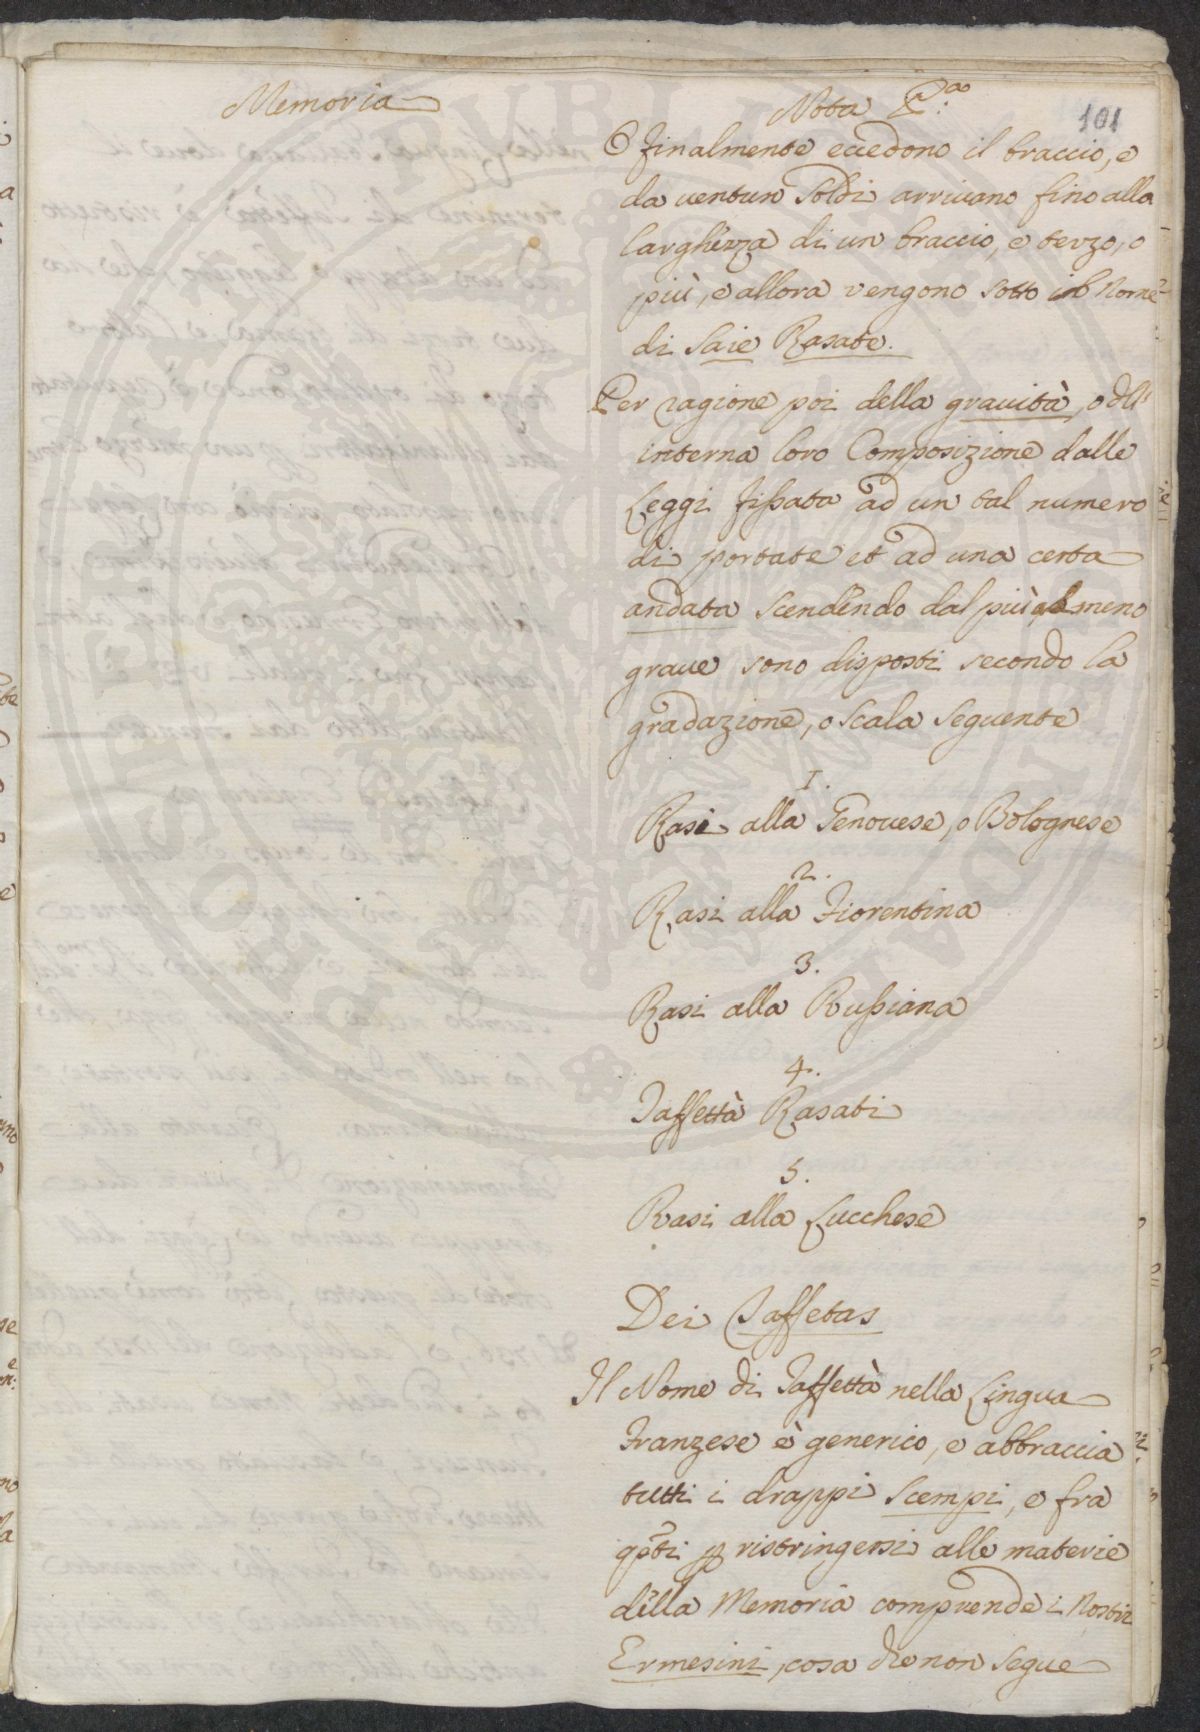 Memoria
Nota P.a
101
O finalmente eccedono il braccio, e
da ventun Soldi arrivano fino alla
larghezza di un braccio, e terzo, o
più, e allora vengono sotto il Nome
di Saie Rasate.
Per ragione poi della gravità, o dell'
interna loro Composizione dalle
Leggi fissata ad un tal numero
di portate et ad una certa
andata scendendo dal più al meno
grave sono disposti secondo la
gradazione, o scala seguente
1.
Rasi alla Genovese, o Bolognese
2.
Rasi alla Fiorentina
3.
Rasi alla Russiana
4.
Taffettà Rasati
5.
Rasi alla Lucchese
Dei Taffetas
Il Nome di Taffettà nella Lingua
Franzese è generico, e abbraccia
tutti i drappi scempi, e fra
qsti p ristringersi alle materie
della Memoria comprende i Nostri
Ermesini, cosa che non segue